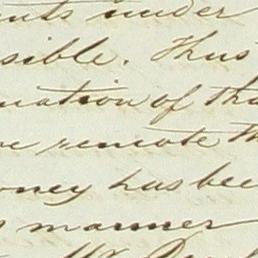 nts under
sible. Thus
uation of tha
ve remote th
oney has bee
manner